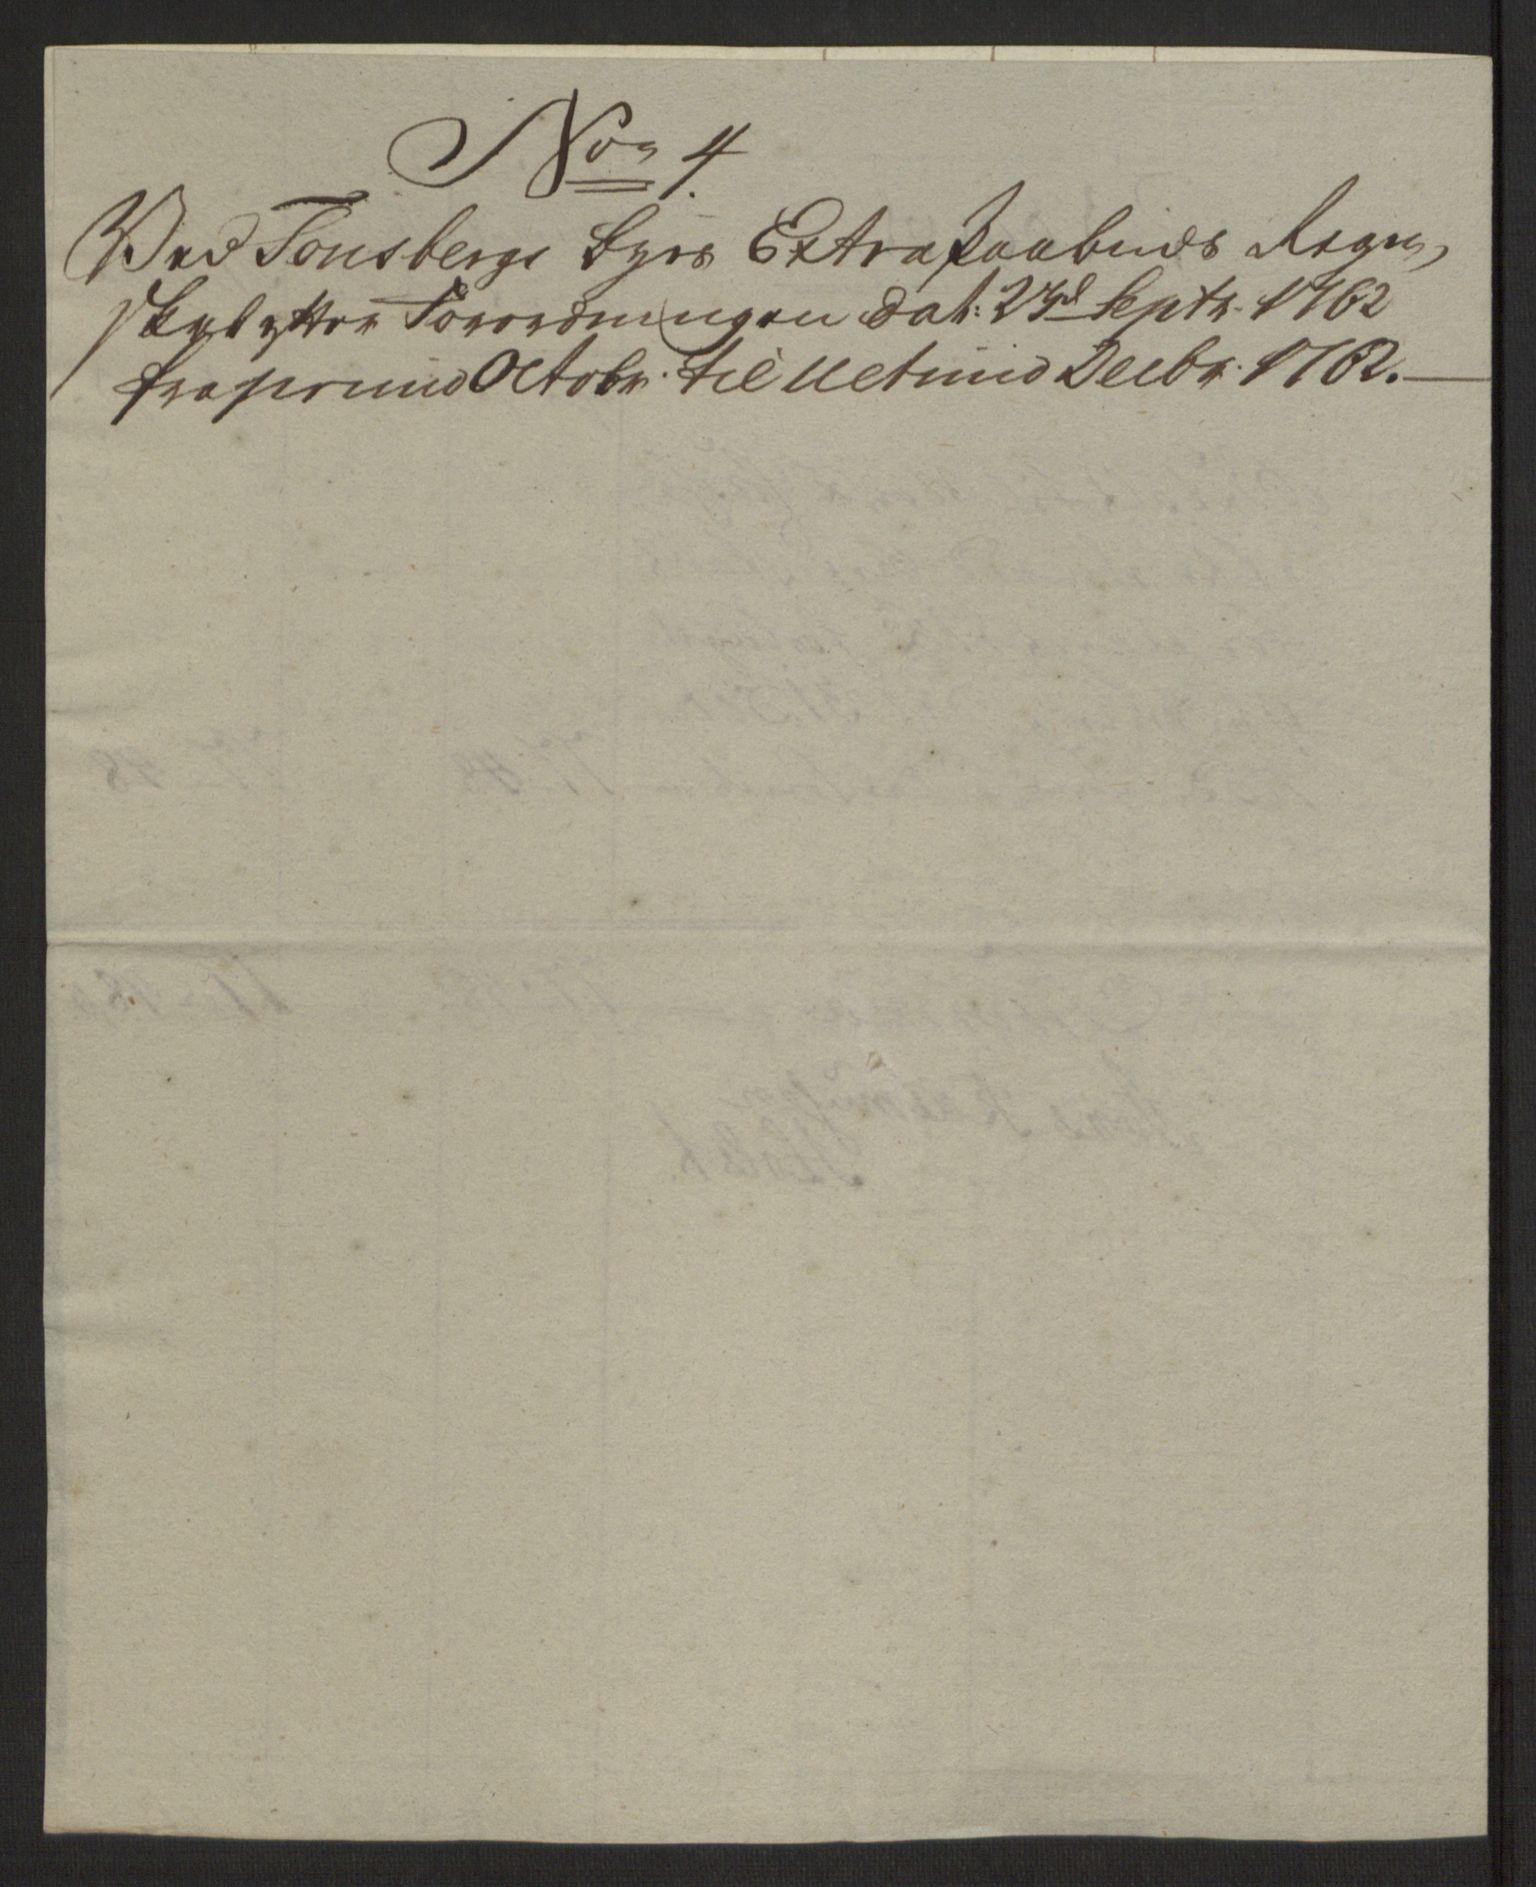 No 4.
Ved Tønsbergs Byes Extra Paabuds Regn,
skab efter Forordningen dat: 23d Septr. 1762
fra primo Octobr. til Ultimo Decbr. 1762.